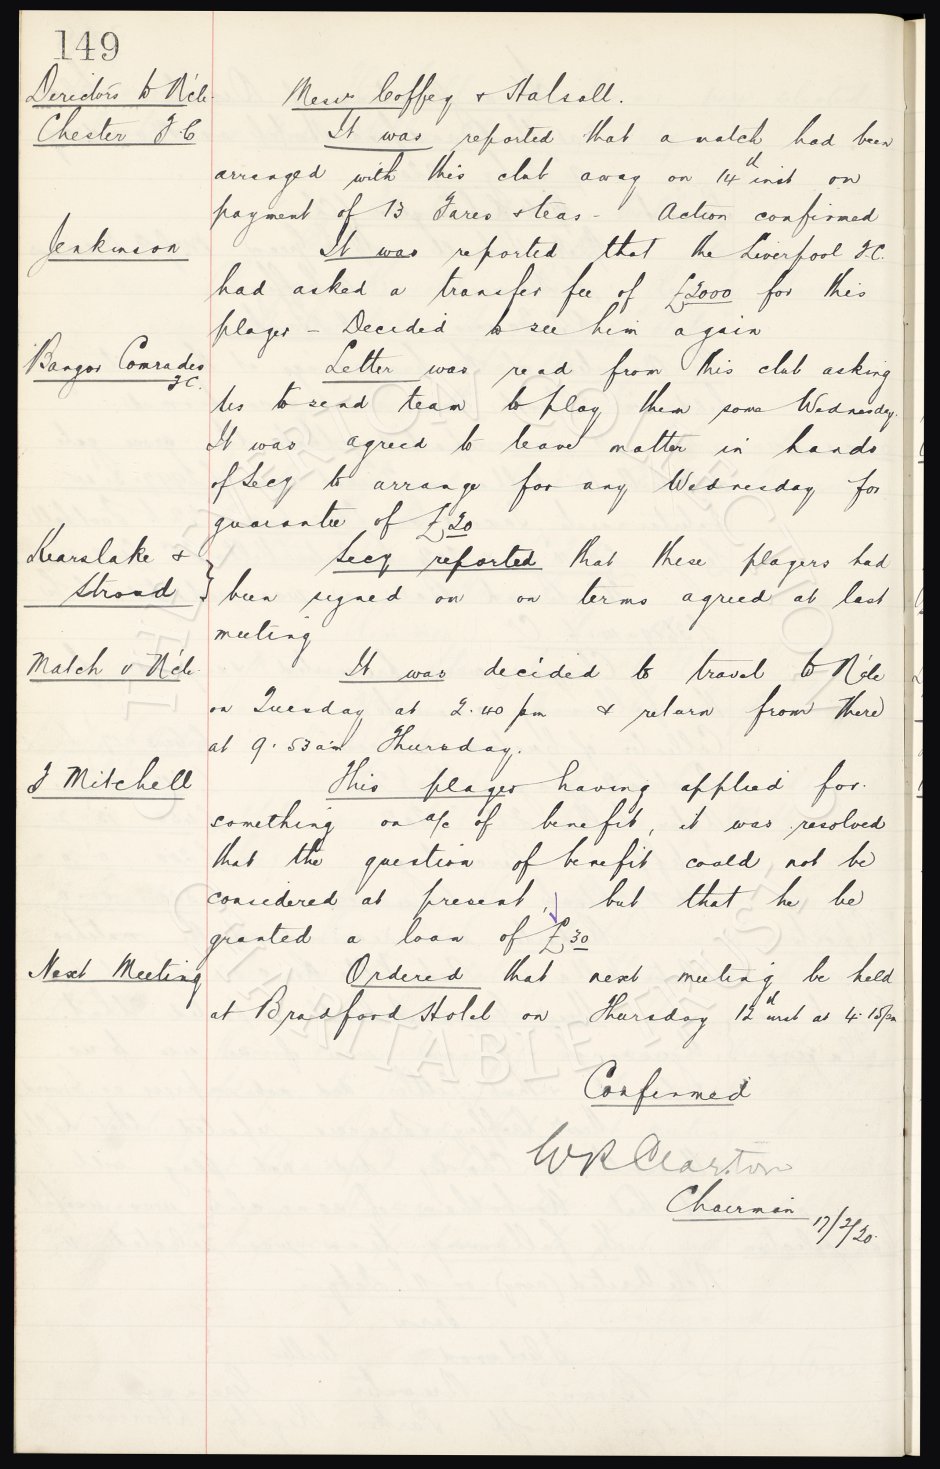 149
Directors to N'cle. Messrs Coffey & Halsall.
Chester F.C It was reported that a match had been
arranged with this club away on 14th inst on
payment of 13 Fares & teas - Action confirmed
Jenkinson It was reported that the Liverpool F.C.
had asked a transfer fee of £2000 for this
player - Decided to see him again
Bangor Comrades Letter was read from this club asking
F.C.
us to send team to play them some Wednesday.
It was agreed to leave matter in hands
of Secy to arrange for any Wednesday for
guarantee of £20
Kearslake & Secy reported that these players had
Stroud } been signed on on terms agreed at last
meeting
Match v N'cle. It was decided to travel to N'cle
on Tuesday at 2.40 pm & return from there
at 9.53 am Thursday.
F Mitchell This player having applied for
something on a/c of benefit, it was resolved
that the question of benefit could not be
considered at present, but that he be
granted a loan of £30
Next Meeting Ordered that next meeting be held
at Bradford Hotel on Thursday 12th inst at 4.15pm
Confirmed
W R Clayton
Chairman
17/2/20.
EVERTON COLLECTION
CHARITABLE TRUST